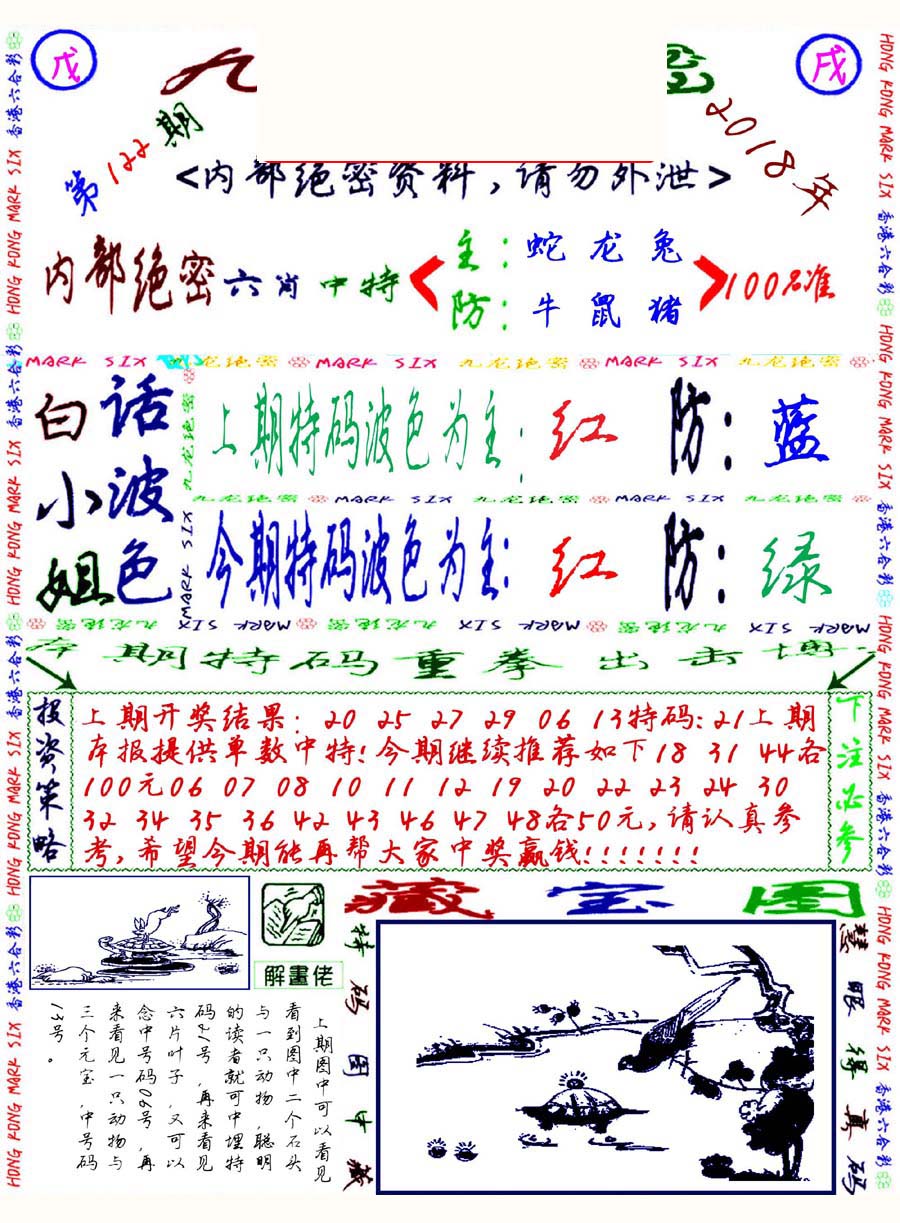 戊
戌
九
密
第122期
2018年
<内部绝密资料,请勿外泄>
内部绝密六肖中特
主:蛇龙兔
防:牛鼠猪
100%准
MARK SIX 九龙绝密 MARK SIX 九龙绝密 MARK SIX 九龙绝密
白话小波姐色
上期特码波色为主:红 防:蓝
九龙绝密 MARK SIX 九龙绝密 MARK SIX 九龙绝密
今期特码波色为主:红 防:绿
九龙绝密 MARK SIX
本期特码重拳出击博
投资策略
上期开奖结果:20 25 27 29 06 13特码:21上期
本报提供单数中特!今期继续推荐如下18 31 44各
100元06 07 08 10 11 12 19 20 22 23 24 30
32 34 35 36 42 43 46 47 48各50元,请认真参
考,希望今期能再帮大家中奖赢钱!!!!!!!
下注必参
解畫佬
藏宝图
特码图中藏
慧眼得真码
上期图中可以看见
看到图中二个石头
与一只动物,聪明
的读者就可中埋特
码21号,再来看见
六片叶子,又可以
念中号码06号,再
来看见一只动物与
三个元宝,中号码
13号。
HONG KONG MARK SIX 香港六合彩 HONG KONG MARK SIX 香港六合彩 HONG KONG MARK SIX 香港六合彩 HONG KONG MARK SIX 香港六合彩
HONG KONG MARK SIX 香港六合彩 HONG KONG MARK SIX 香港六合彩 HONG KONG MARK SIX 香港六合彩 HONG KONG MARK SIX 香港六合彩